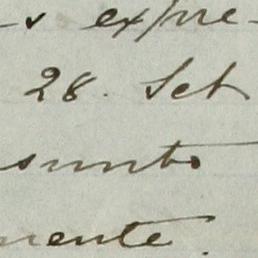 -s expre-
28. Set
sunto
mente.